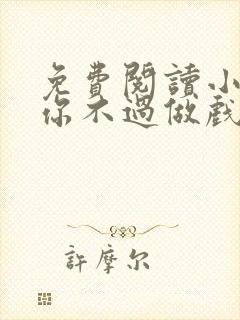 免費閱讀小
你不過做戲
許摩尔